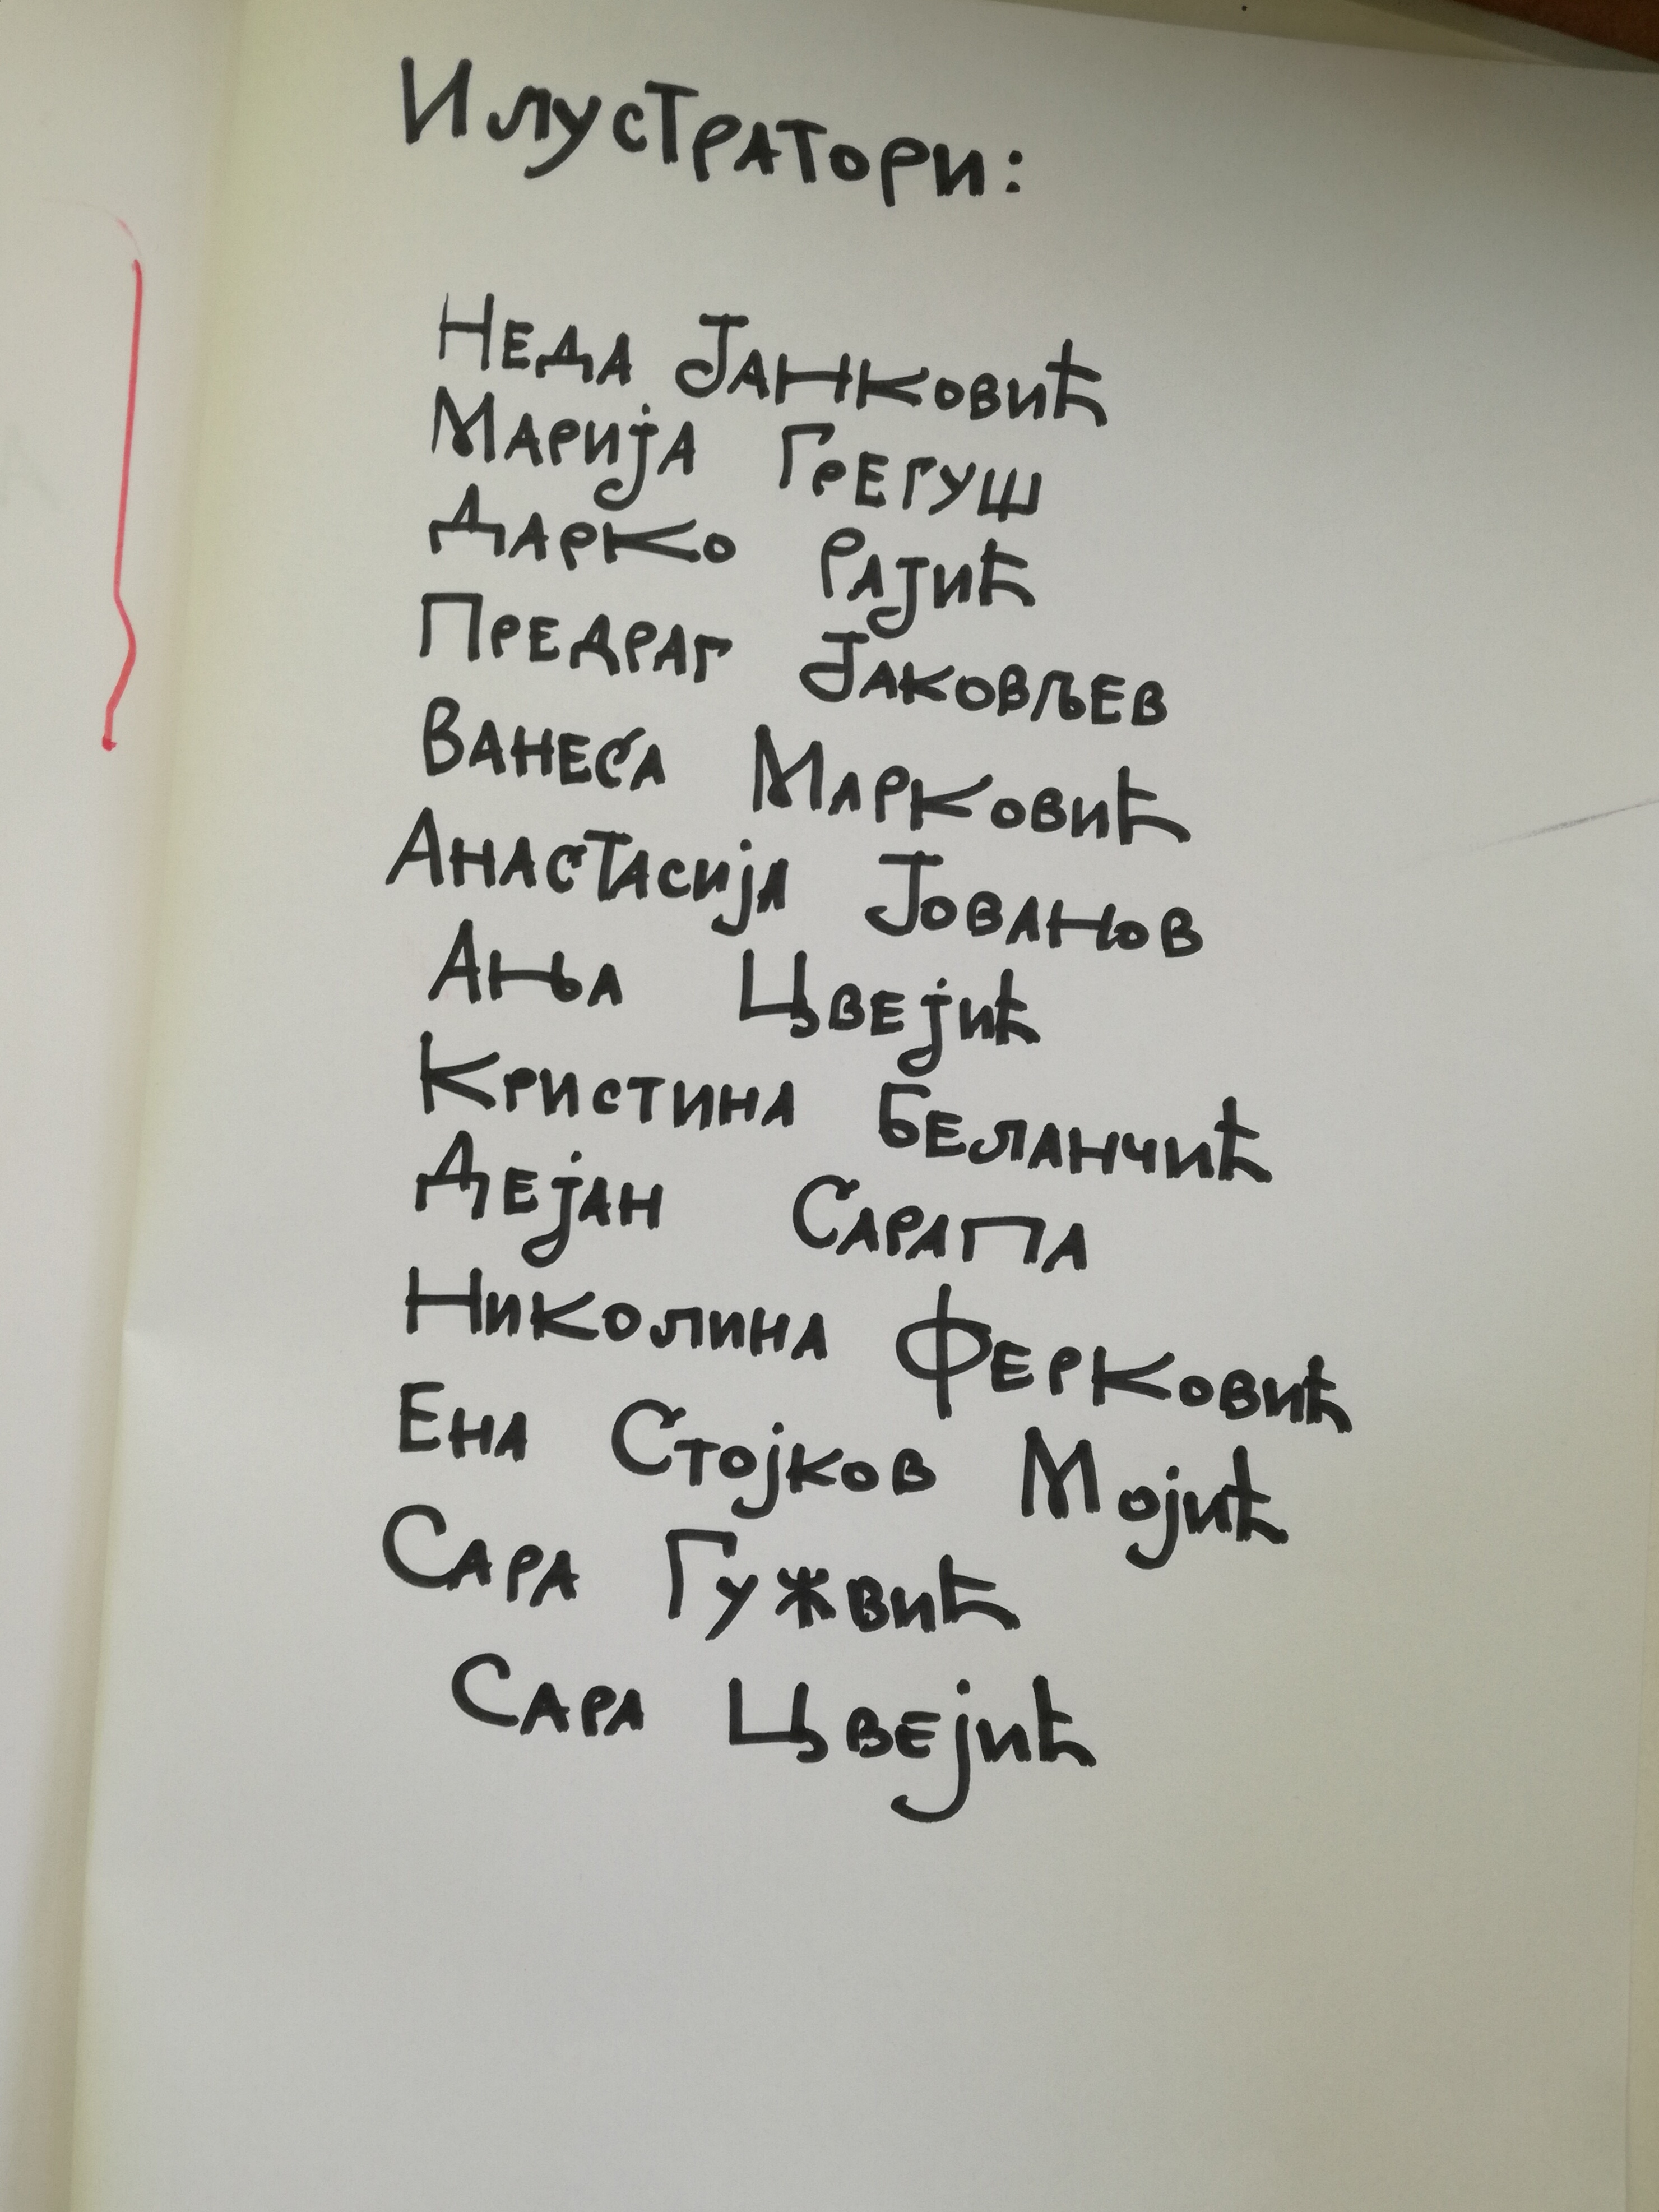 Илустратори:
Неда Јанковић
Марија Грегуш
Дарко Рајић
Предраг Јаковљев
Ванеса Марковић
Анастасија Јованов
Ања Цвејић
Кристина Беланчић
Дејан Сарапа
Николина Ферковић
Ена Стојков Мојић
Сара Гужвић
Сара Цвејић